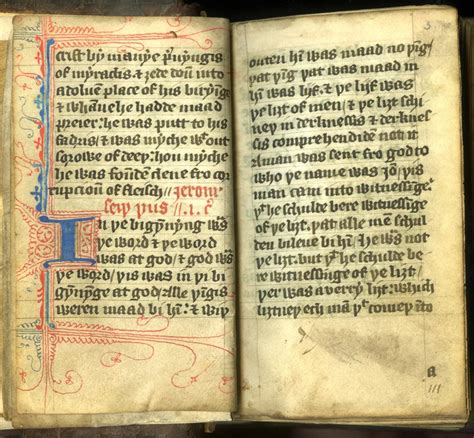 crist by manye p'uyngis
of myraclis & ȝede doū into
a doluen place of his biryīge
& whāne he hadde maad
preier: he was putt to his
fadris, & was myche wᵗout
sorowe of deeþ: hou myche
he was foūden clene fro cor
rupcioū of fleisch / Jerom
seiþ þus /. i. c̄
In þe bigynnyng was
þe word & þe word
was at god / & god was
þe word / þis was in þe bi
gynnynge at god / alle þīgis
weren maad bi hī: & wiþ
outen hī was maad no þīg
þat þīg þat was maad in
hī was lijf. & þe lijf was
þe liȝt of men / & þe liȝt schi
neþ in derknessis & derknes
sis comprehendide not it
A man was sent fro god to
who þe name was Jō / þis
man cam into witnessīge.
þᵗ he schulde bere witnessīge
of þe liȝt. þat alle men schul
den bileue bi hī. he was not
þe liȝt: but þᵗ he schulde be
re witnessinge of þe liȝt /
þer was a verry liȝt: which
liȝtneþ ech man þᵗ comeþ īto
a